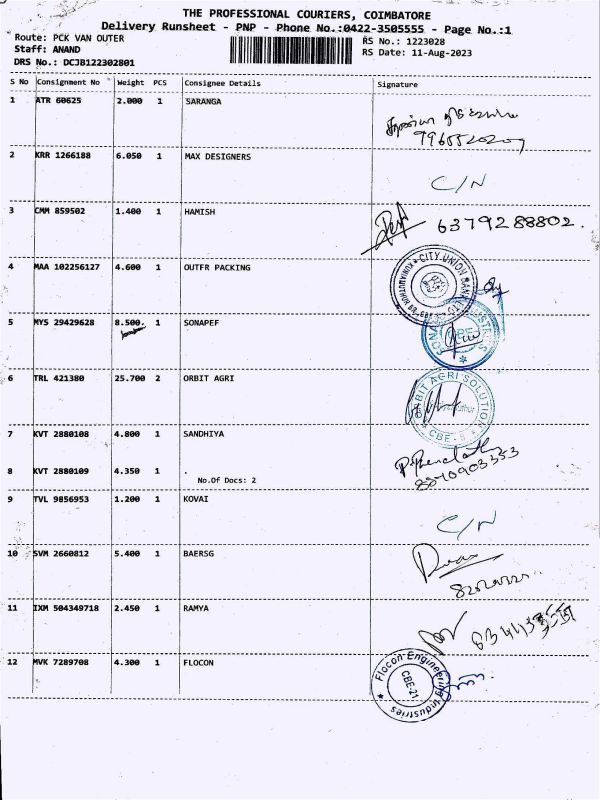 THE PROFESSIONAL COURIERS, COIMBATORE
Delivery Runsheet - PNP - Phone No.:0422-3505555 - Page No.:1
Route: PCK VAN OUTER
RS No.: 1223028
Staff: ANAND
RS Date: 11-Aug-2023
DRS No.: DCJB122302801
S No Consignment No Weight PCS Consignee Details Signature
1 ATR 60625 2.000 1 SARANGA
2 KRR 1266188 6.050 1 MAX DESIGNERS
C/N
3 CMM 859502 1.400 1 HAMISH
6379288802.
4 MAA 102256127 4.600 1 OUTFR PACKING
CITY UNION BANK
5 MYS 29429628 8.500 1 SONAPEF
6 TRL 421380 25.700 2 ORBIT AGRI
ORBIT AGRI SOLUTION
CBE
7 KVT 2880108 4.800 1 SANDHIYA
8 KVT 2880109 4.350 1 .
No.Of Docs: 2
8870903353
9 TVL 9856953 1.200 1 KOVAI
C/N
10 SVM 2660812 5.400 1 BAERSG
11 IXM 504349718 2.450 1 RAMYA
12 MVK 7289708 4.300 1 FLOCON
Flocon Engineering Industries
CBE-21